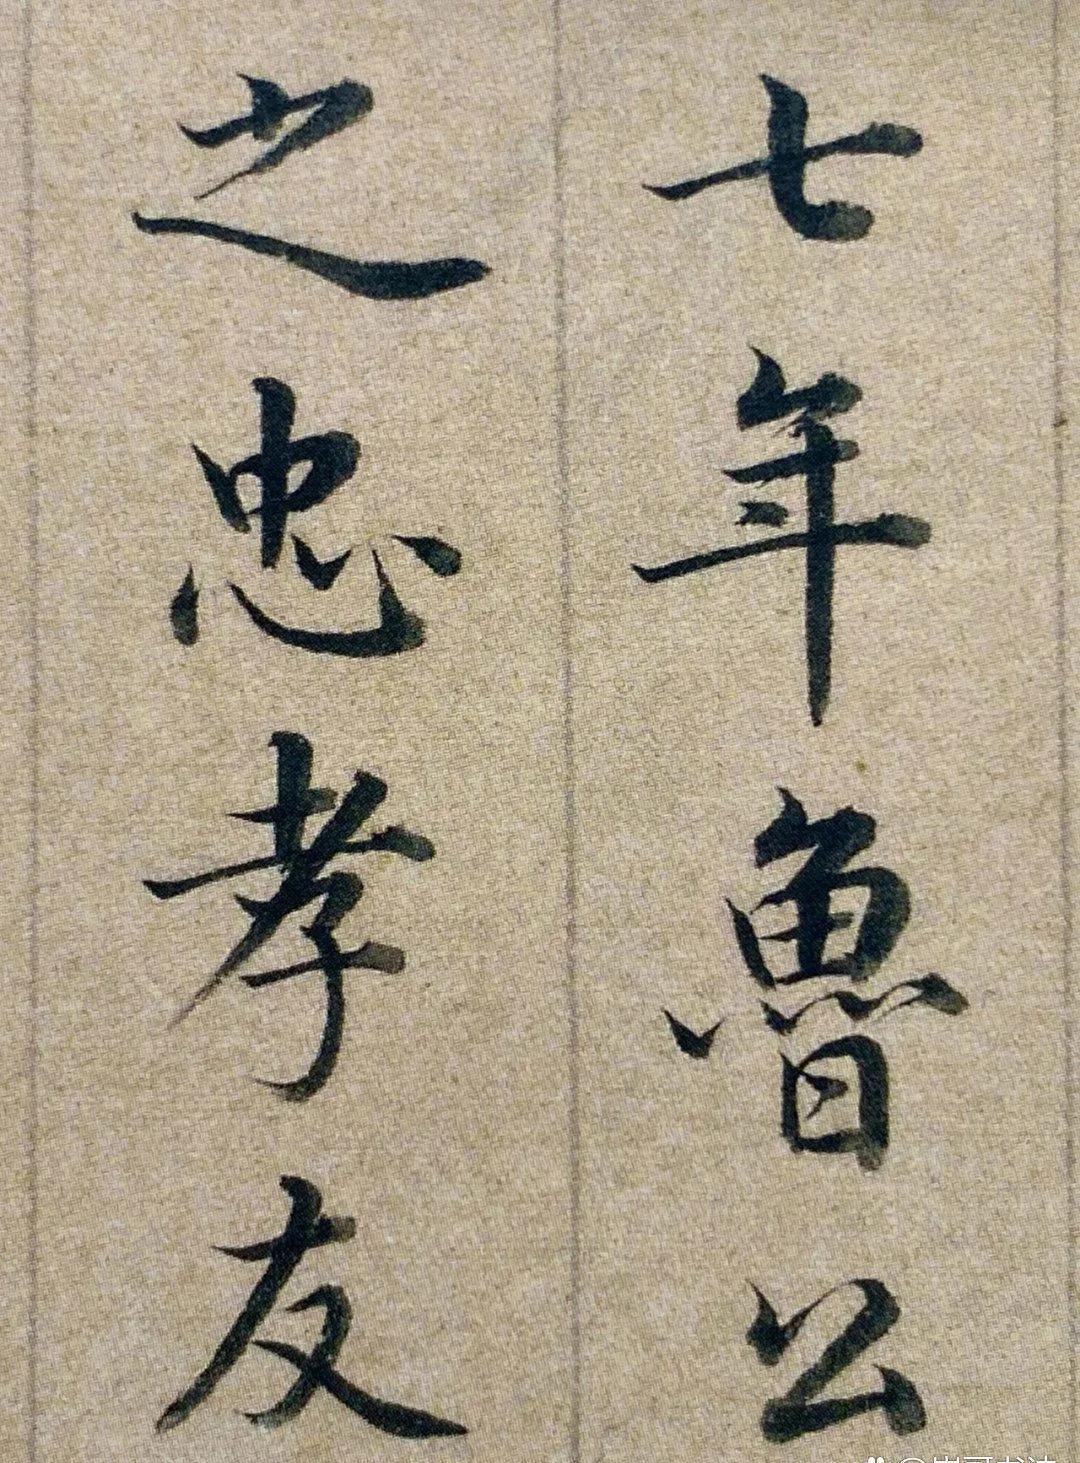 七年魯公
之忠孝友